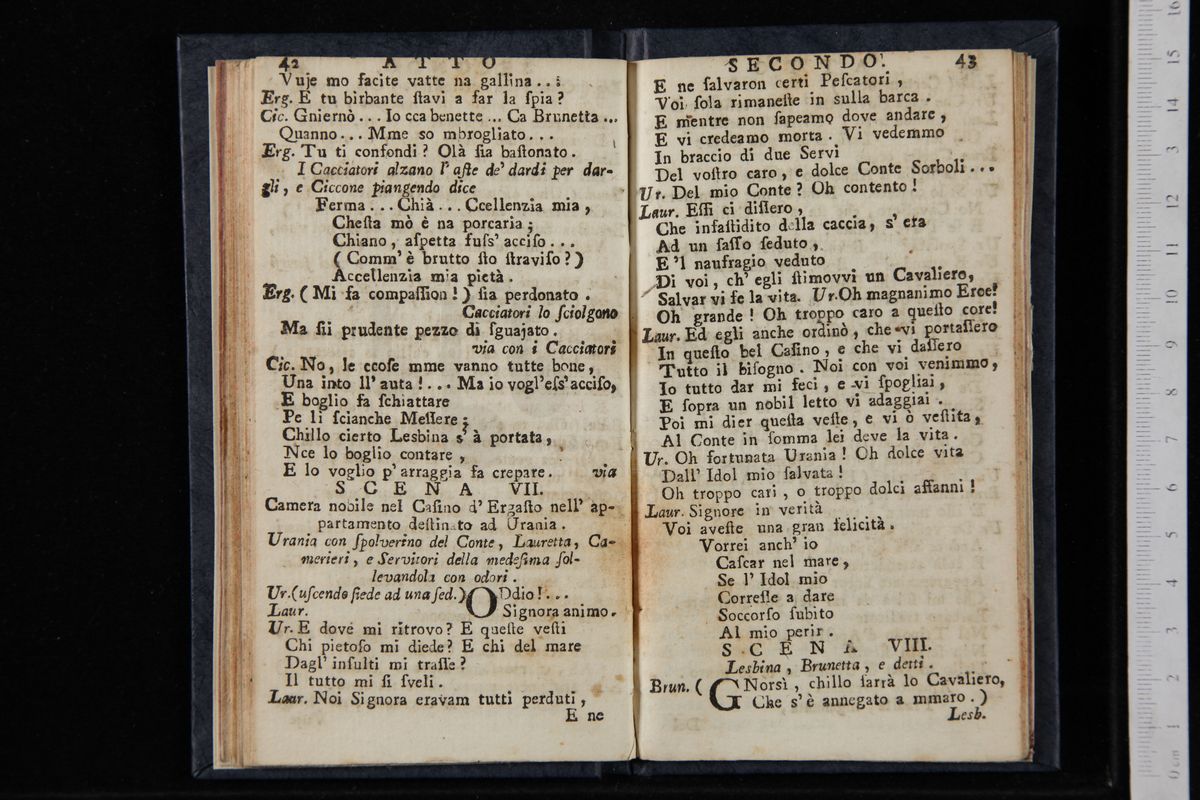 42 ATTO
Vuje mo facite vatte na gallina . . :
Erg. E tu birbante ſtavi a far la ſpia ?
Cic. Gniernò . . . Io cca benette ... Ca Brunetta ...
Quanno . . . Mme so mbrogliato . . .
Erg. Tu ti confondi ? Olà ſia baſtonato .
I Cacciatori alzano l' aſte de' dardi per dar-
gli , e Ciccone piangendo dice
Ferma . . . Chià . . . Ccellenzia mia ,
Cheſta mò è na porcaria ;
Chiano , aſpetta fuſs' acciſo . . .
( Comm' è brutto ſto ſtraviſo ? )
Accellenzia mia pietà .
Erg. ( Mi fa compaſſion ! ) ſia perdonato .
Cacciatori lo ſciolgono
Ma ſii prudente pezzo di ſguajato .
via con i Cacciatori
Cic. No , le ccoſe mme vanno tutte bone ,
Una into ll' auta ! . . . Ma io vogl'eſs' acciſo,
E boglio fa ſchiattare
Pe li ſcianche Meſſere ;
Chillo cierto Lesbina s' à portata ,
Nce lo boglio contare ,
E lo voglio p' arraggia fa crepare . via
SCENA VII.
Camera nobile nel Caſino d' Ergaſto nell' ap-
partamento deſtinato ad Urania .
Urania con ſpolverino del Conte , Lauretta , Ca-
merieri , e Servitori della medeſima ſol-
levandola con odori .
Ur.(uſcendo ſiede ad una ſed.) ODdio ! . . .
Laur. Signora animo.
Ur. E dove mi ritrovo ? E queſte veſti
Chi pietoſo mi diede ? E chi del mare
Dagl' inſulti mi traſſe ?
Il tutto mi ſi ſveli .
Laur. Noi Signora eravam tutti perduti ,
E ne
SECONDO. 43
E ne ſalvaron certi Peſcatori ,
Voi ſola rimaneſte in sulla barca .
E mentre non ſapeamo dove andare ,
E vi credeamo morta . Vi vedemmo
In braccio di due Servi
Del voſtro caro , e dolce Conte Sorboli . . .
Ur. Del mio Conte ? Oh contento !
Laur. Eſſi ci diſſero ,
Che infaſtidito della caccia, s' era
Ad un ſaſſo ſeduto ,
E 'l naufragio veduto
Di voi , ch' egli ſtimovvi un Cavaliero,
Salvar vi fe la vita. Ur.Oh magnanimo Eroe!
Oh grande ! Oh troppo caro a queſto core!
Laur. Ed egli anche ordinò , che vi portaſſero
In queſto bel Caſino , e che vi daſſero
Tutto il biſogno . Noi con voi venimmo,
Io tutto dar mi feci , e vi ſpogliai ,
E ſopra un nobil letto vi adaggiai .
Poi mi dier queſta veſte , e vi ò veſtita,
Al Conte in ſomma lei deve la vita .
Ur. Oh fortunata Urania ! Oh dolce vita
Dall' Idol mio ſalvata !
Oh troppo cari , o troppo dolci affanni !
Laur. Signore in verità
Voi aveſte una gran felicità .
Vorrei anch' io
Caſcar nel mare ,
Se l' Idol mio
Correſſe a dare
Soccorſo ſubito
Al mio perir .
SCENA VIII.
Lesbina , Brunetta , e detti .
Brun. ( GNorsì , chillo ſarrà lo Cavaliero,
Che s' è annegato a mmaro . )
Lesb.
0 cm 1 2 3 4 5 6 7 8 9 10 11 12 13 14 15 16